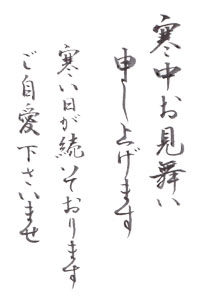 寒中お見舞い
申し上げます
寒い日が続いております
ご自愛下さいませ